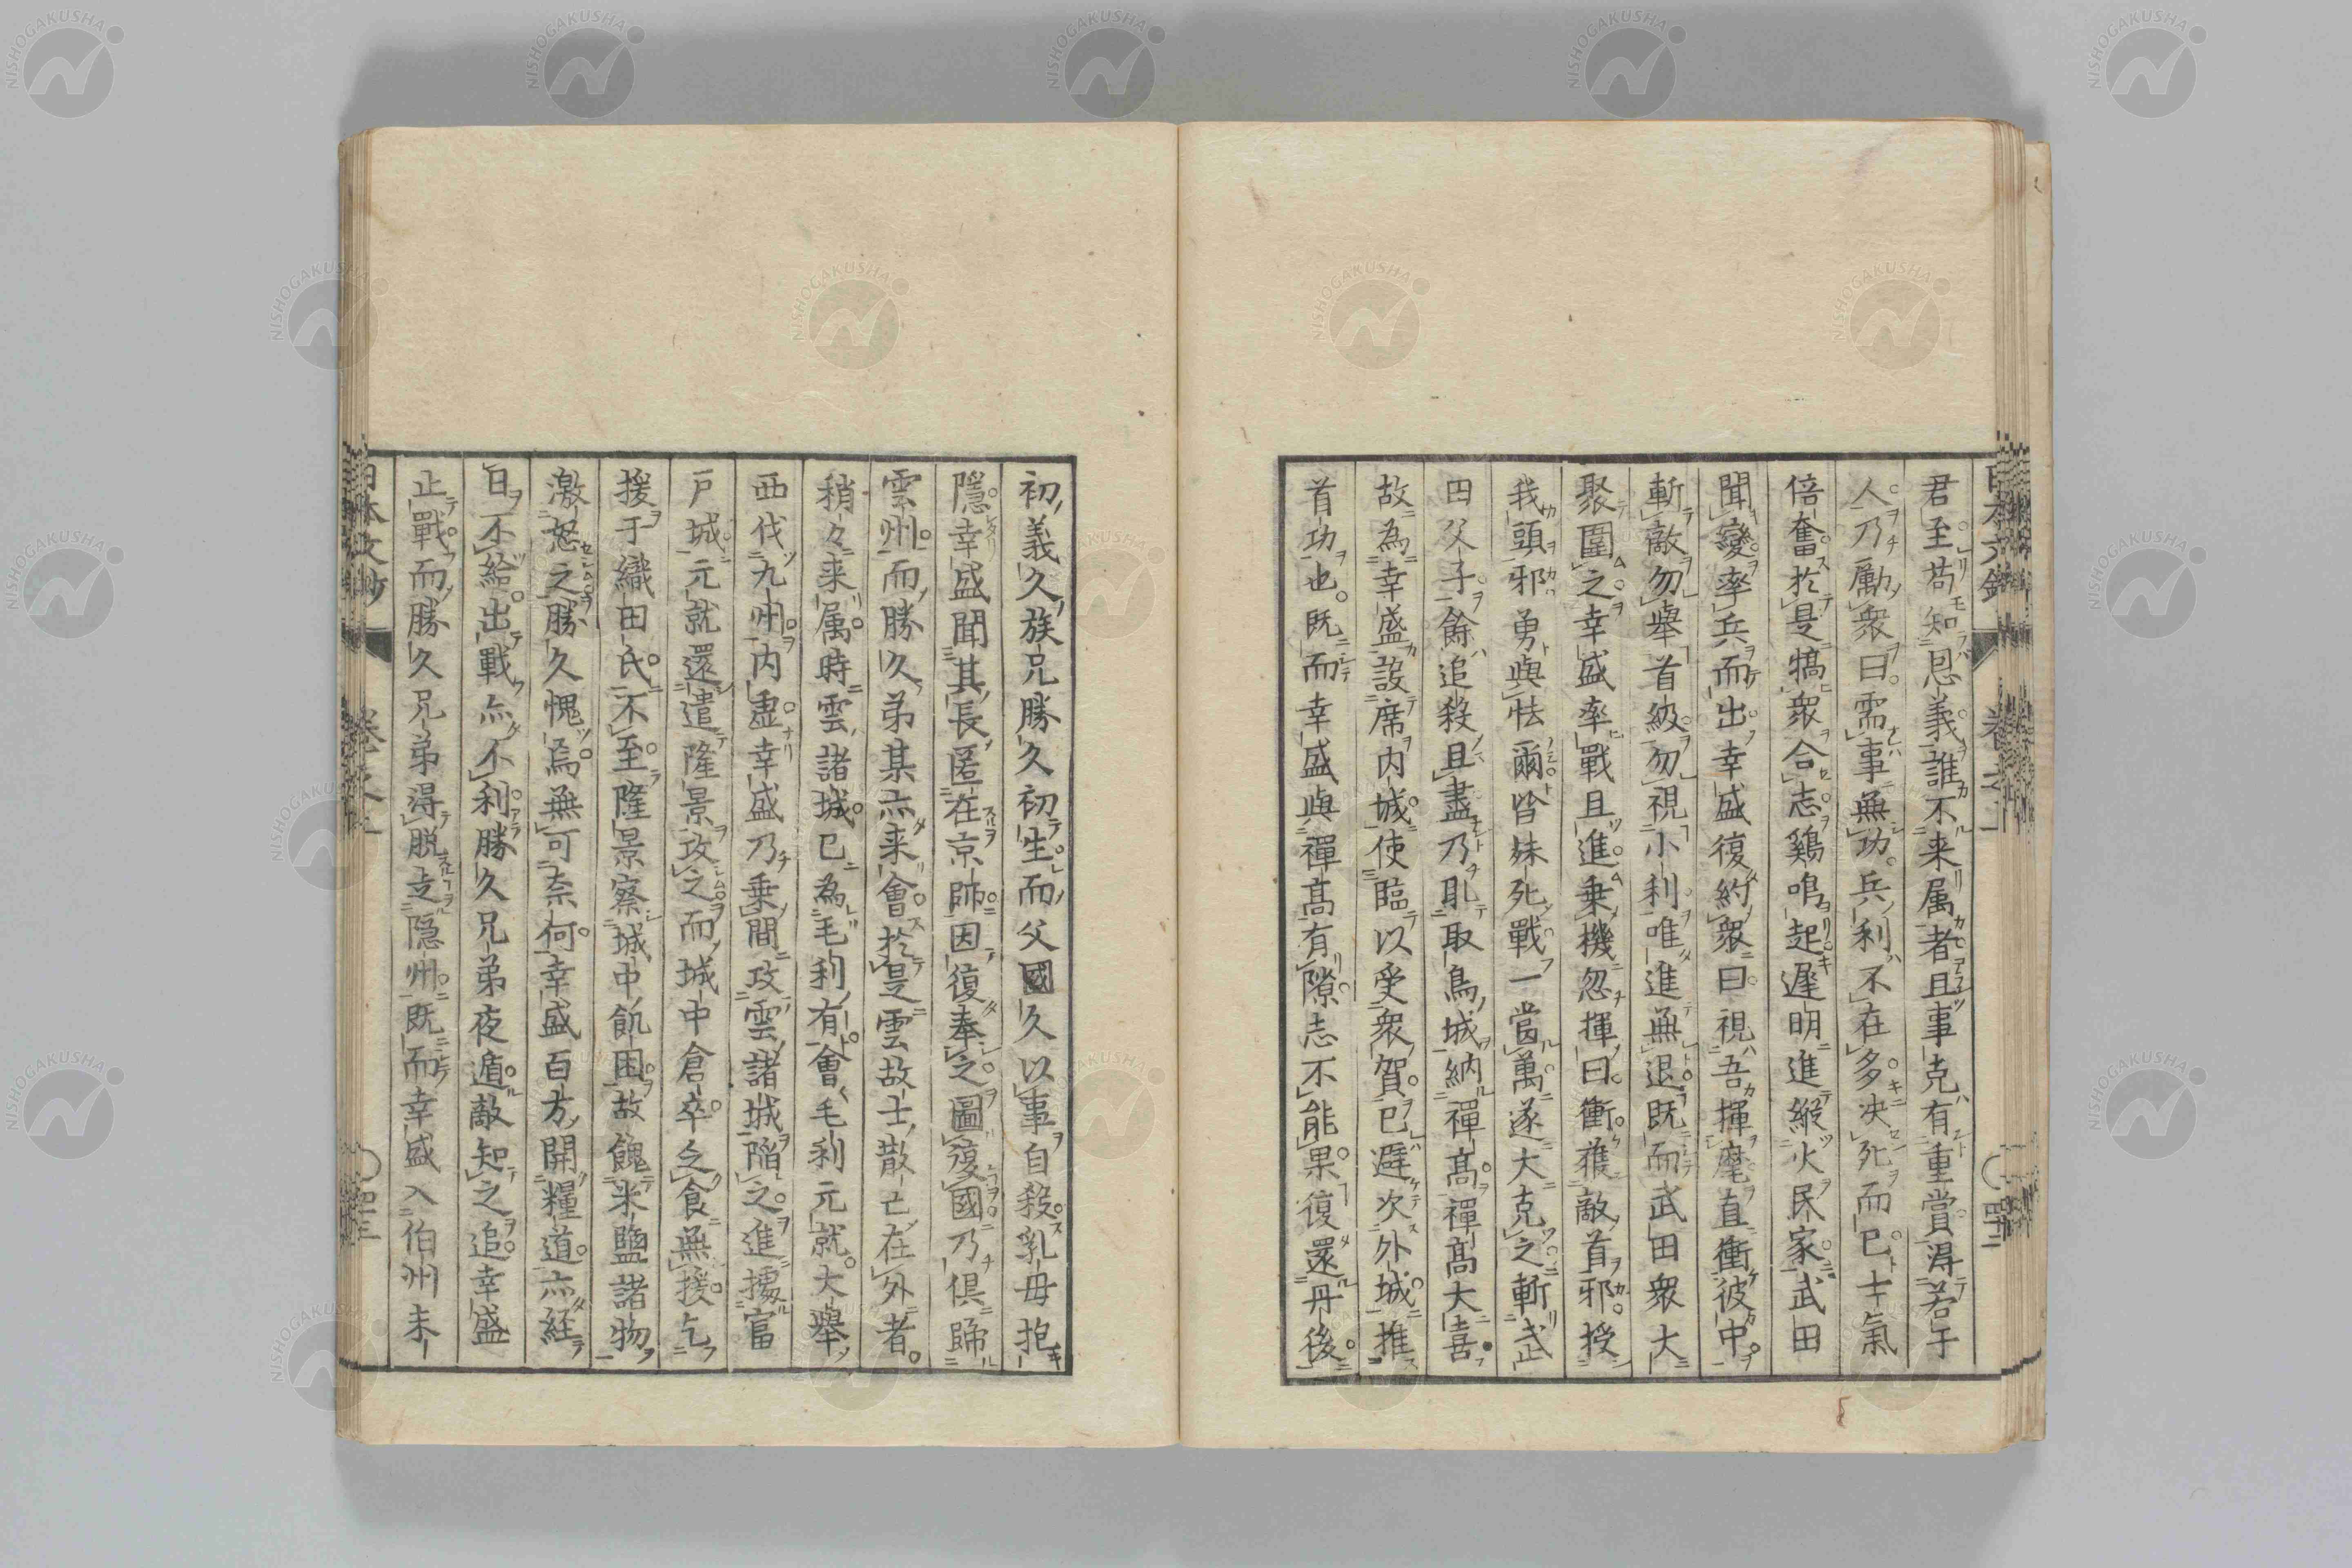 君至苟知恩義誰不来属者且事克有重賞得若于
人乃勵衆曰需事無功兵利不在多决死而已士氣
倍奮於是犒衆合志鷄鳴起遅明進縱火民家武田
聞變率兵而出幸盛復約衆曰視吾揮麾直衝彼中
斬敵勿擧首級勿視小利唯進無退既而武田衆大
聚圍之幸盛率戰且進乗機忽揮曰衝獲敵首邪授
我頭邪勇與怯爾皆妹死戰一當萬遂大克之斬武
田父子餘追殺且盡乃即取鳥城納禪高禪高大喜
故為幸盛設席内城使臨以受衆賀已避次外城推
首功也既而幸盛與禪高有隙志不能果復還丹後
初義久族兄勝久初生而父國久以事自殺乳母抱
隱幸盛聞其長匿在京師因復奉之圖復國乃倶歸
雲州而勝久弟某亦来會於是雲故士散亡在外者
稍々来属時雲諸城已為毛利有會毛利元就大擧
西伐九州内虚幸盛乃乗間攻雲諸城陥之進據富
戸城元就還遣隆景攻之而城中倉卒乏食無援乞
援于織田氏不至隆景察城中飢困故餽米鹽諸物
激怒之勝久愧焉無可奈何幸盛百方開糧道亦経
日不給出戰亦不利勝久兄弟夜遁敵知之追幸盛
止戰而勝久兄弟得脱走隠州既而幸盛入伯州末
NISHOGAKUSHA